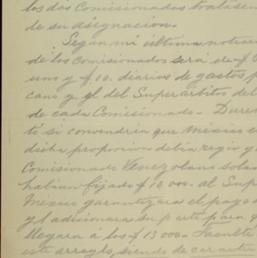 los dos Comisionados tratasen
de su designacion.
Segun mi última noticia
de los Comisionados será de
uno y $10. diarios de gastos p
y el del Superarbitro del
de cada Comisionado.
si convendria que Mexico
dicha proporcion
Comisionado Venezolano sola
habian fijado $10 000. al Sup
Mexico el pago
y adicionara su parte para q
llegara á los $13 000.
este arreglo, siendo de caracter